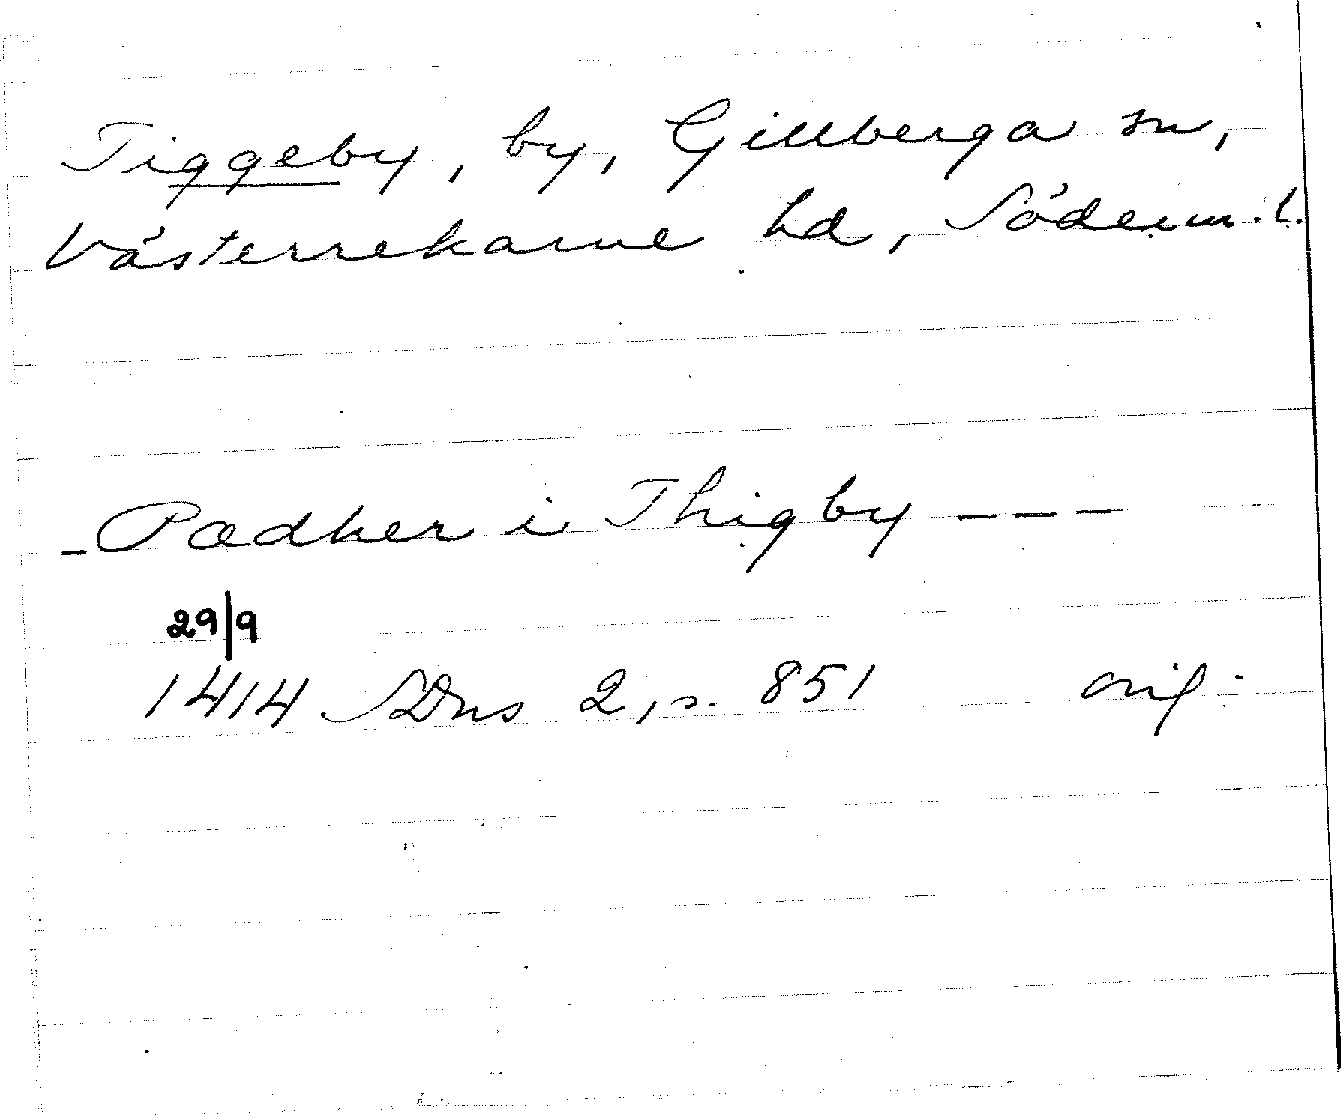 Tiggeby, by, Gillberga sn,
Västerrekarne hd, Söderm. l.
- Pædher i Thigby - - -
29/9
1414 SDns 2, s. 851 orig.